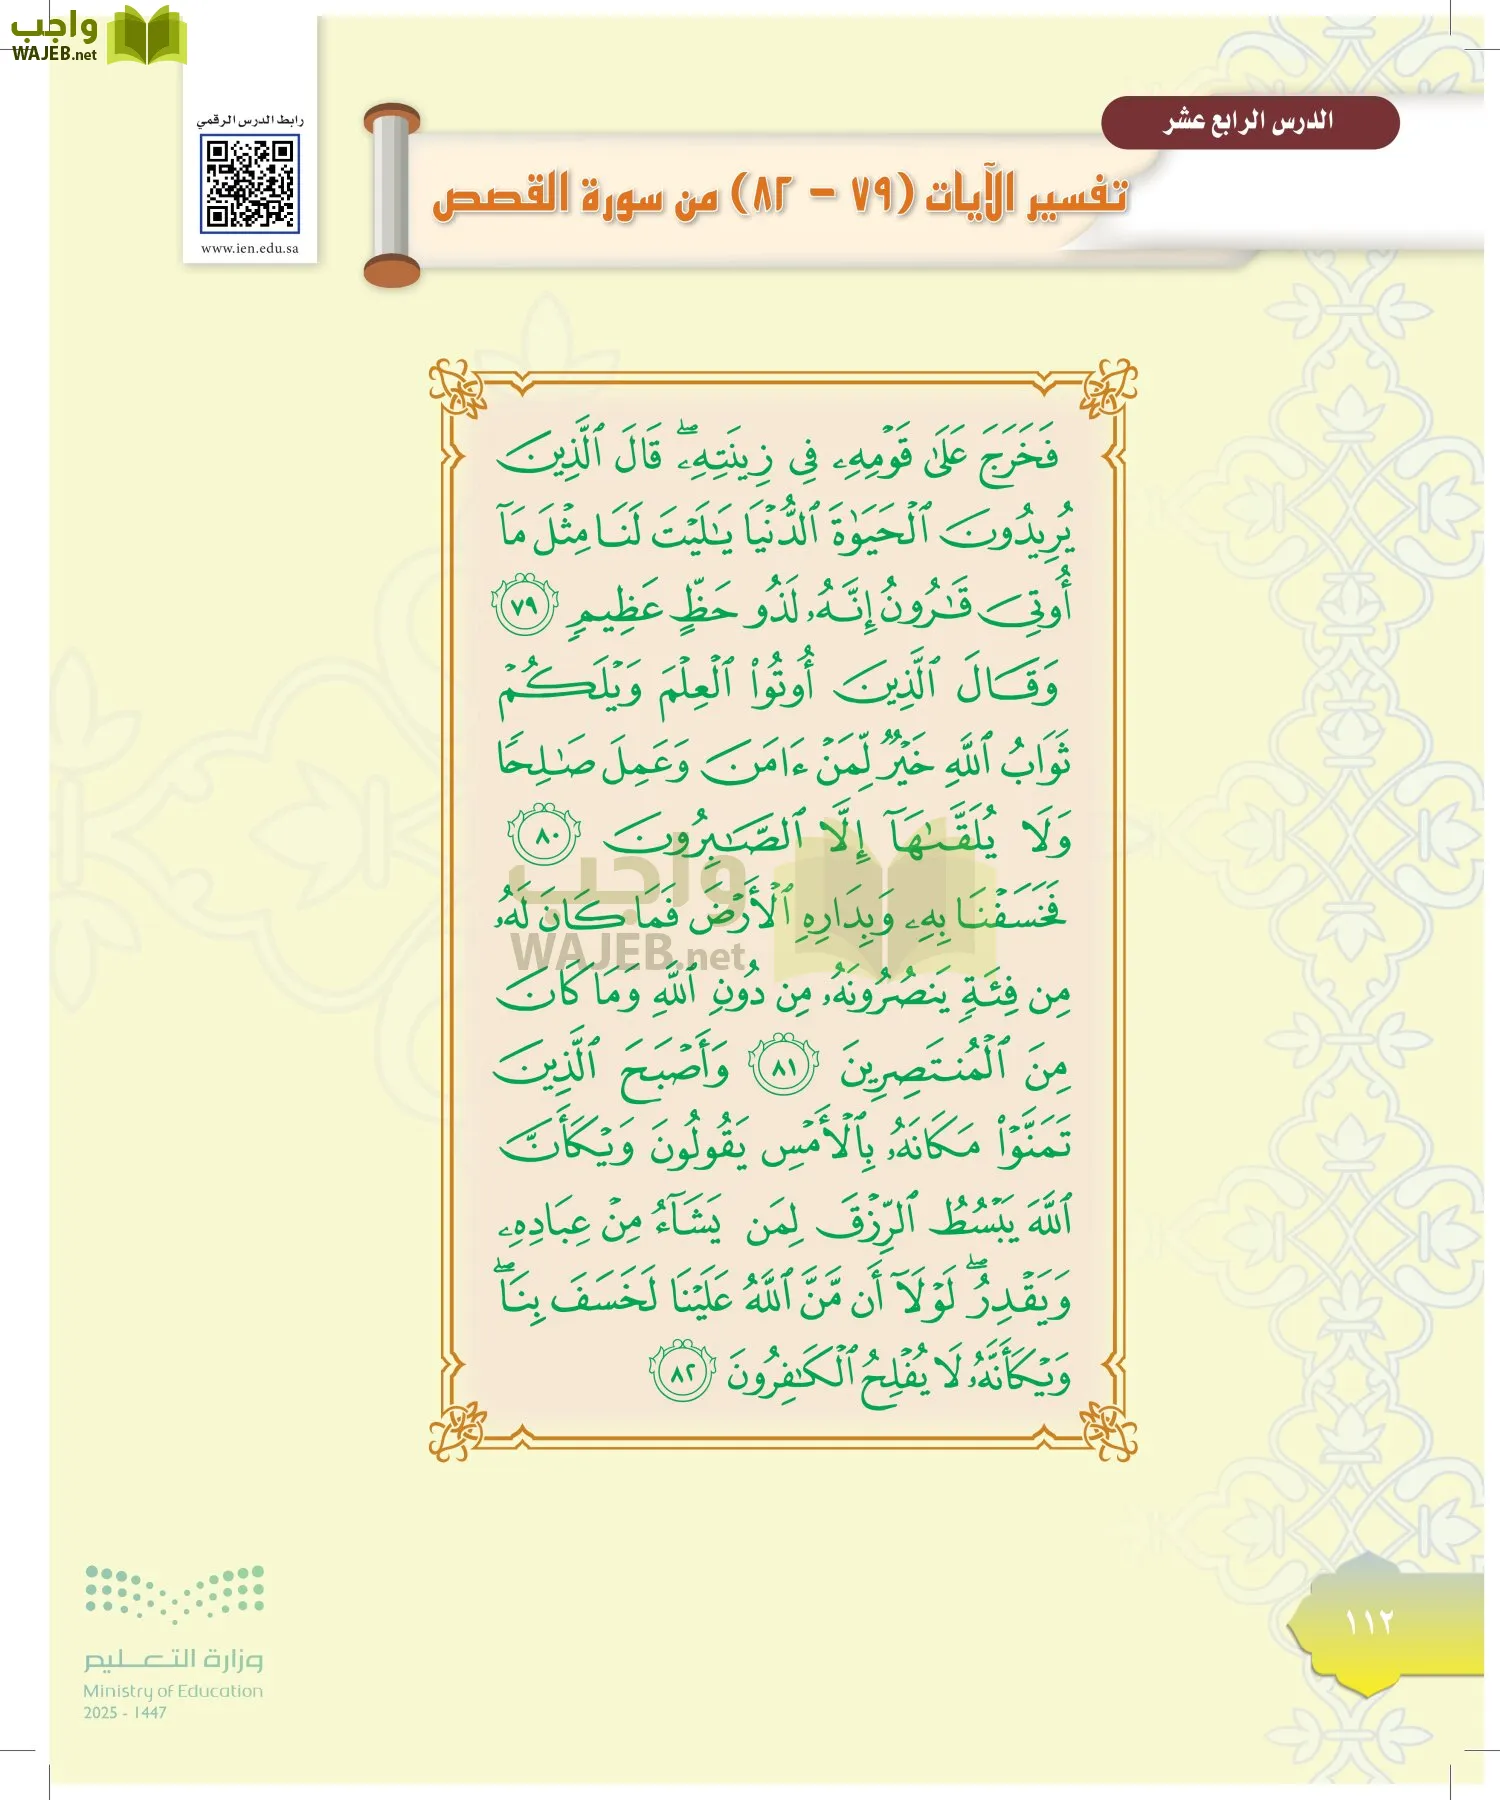 واجب
WAJEB.net
الدرس الرابع عشر
رابط الدرس الرقمي
www.ien.edu.sa
تفسير الآيات (٧٩ - ٨٢) من سورة القصص
فَخَرَجَ عَلَىٰ قَوْمِهِۦ فِي زِينَتِهِۦۖ قَالَ ٱلَّذِينَ
يُرِيدُونَ ٱلْحَيَوٰةَ ٱلدُّنْيَا يَٰلَيْتَ لَنَا مِثْلَ مَآ
أُوتِيَ قَٰرُونُ إِنَّهُۥ لَذُو حَظٍّ عَظِيمٍ ٧٩
وَقَالَ ٱلَّذِينَ أُوتُوا۟ ٱلْعِلْمَ وَيْلَكُمْ
ثَوَابُ ٱللَّهِ خَيْرٌ لِّمَنْ ءَامَنَ وَعَمِلَ صَٰلِحًا
وَلَا يُلَقَّىٰهَآ إِلَّا ٱلصَّٰبِرُونَ ٨٠
فَخَسَفْنَا بِهِۦ وَبِدَارِهِ ٱلْأَرْضَ فَمَا كَانَ لَهُۥ
مِن فِئَةٍ يَنصُرُونَهُۥ مِن دُونِ ٱللَّهِ وَمَا كَانَ
مِنَ ٱلْمُنتَصِرِينَ ٨١ وَأَصْبَحَ ٱلَّذِينَ
تَمَنَّوْا۟ مَكَانَهُۥ بِٱلْأَمْسِ يَقُولُونَ وَيْكَأَنَّ
ٱللَّهَ يَبْسُطُ ٱلرِّزْقَ لِمَن يَشَآءُ مِنْ عِبَادِهِۦ
وَيَقْدِرُۖ لَوْلَآ أَن مَّنَّ ٱللَّهُ عَلَيْنَا لَخَسَفَ بِنَاۖ
وَيْكَأَنَّهُۥ لَا يُفْلِحُ ٱلْكَٰفِرُونَ ٨٢
واجب
WAJEB.net
١١٢
وزارة التعليم
Ministry of Education
2025 - 1447